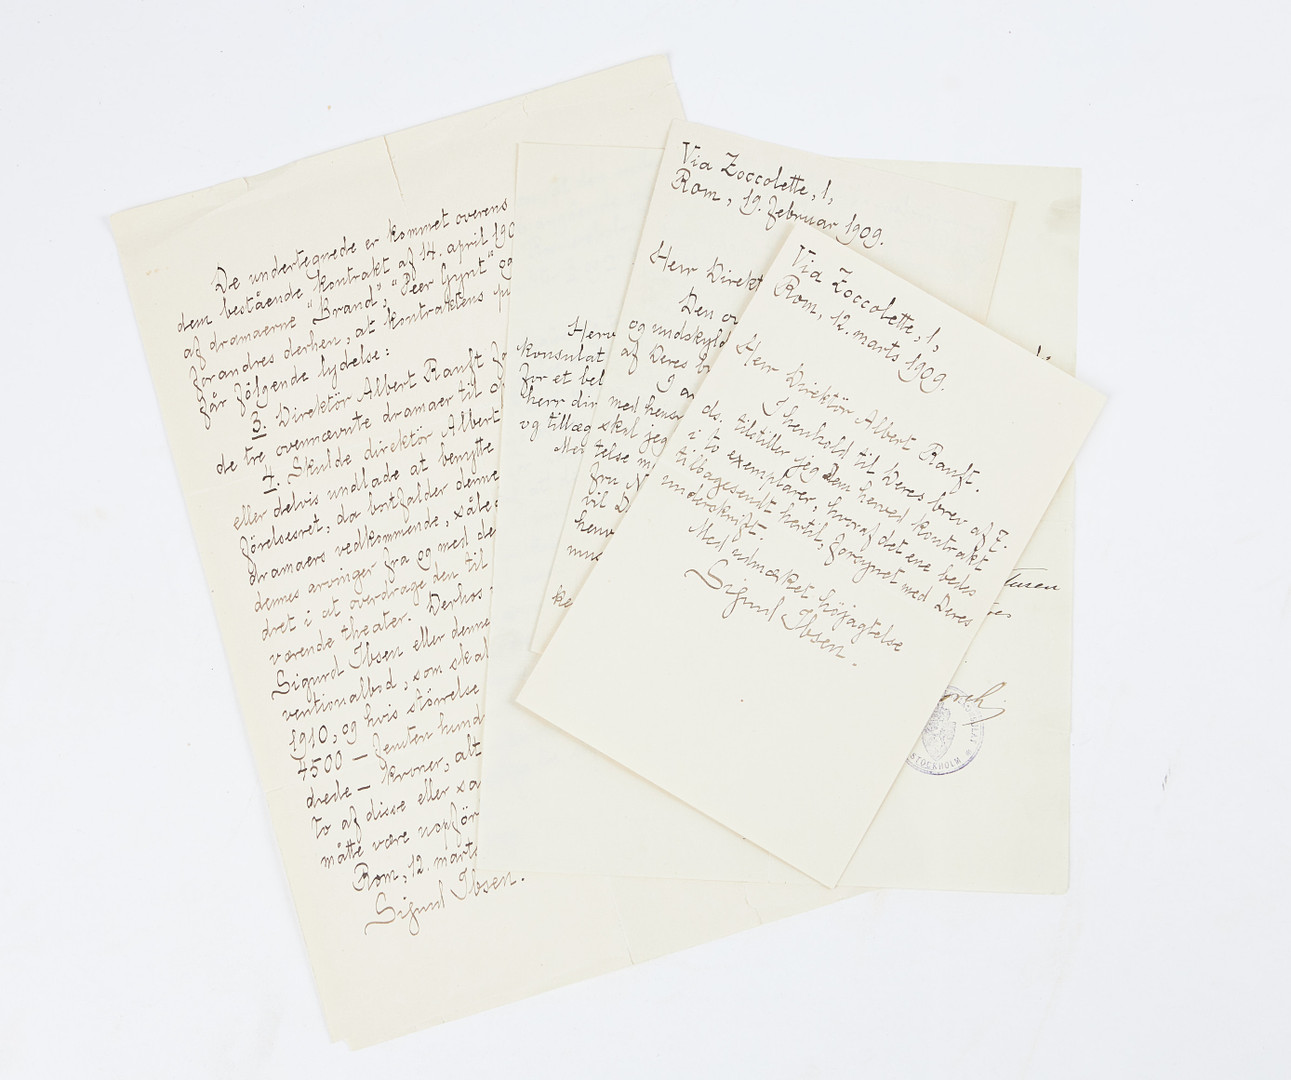 De undertegnede er kommet overens
dem bestående kontrakt af 14. april 190
af dramaerne "Brand", "Peer Gynt" og
forandres derhen, at kontraktens pu
får følgende lydelse:
3. Direktör Albert Ranft fo
de tre ovennævnte dramaer til op
4. Skulde direktör Albert
eller delvis undlade at benytte
förelsesret, da bortfalder denne
dramaers vedkommende, såle
dennes arvinger fra og med de
dret i at overdrage den til
værende theater. Derhos
Sigurd Ibsen eller denne
ventionalbod, som skal
1910, og hvis störrelse
4500 — femten hund
drede — kroner, alt
to af disse eller sa
måtte være uopför
Rom, 12. marts
Sigurd Ibsen.
Herv
Konsulat
for et bel
herr dir
og tillæg skal jeg
Med
Via Zoccolette, 1,
Rom, 19. februar 1909.
Herr Direkt
Den ov
og undskyld
af Deres br
9 an
med hens
telse m
fru N
vil D
henv
mus
Via Zoccolette, 1,
Rom, 12. marts 1909.
Herr Direktör Albert Ranft.
I henhold til Deres brev af 7.
ds. tilstiller jeg Dem herved kontrakt
i to exemplarer, hvoraf det ene bedes
tilbagesendt hertil, forsynet med Deres
underskrift.
Med udmærket höjagtelse
Sigurd Ibsen.
STOCKHOLM